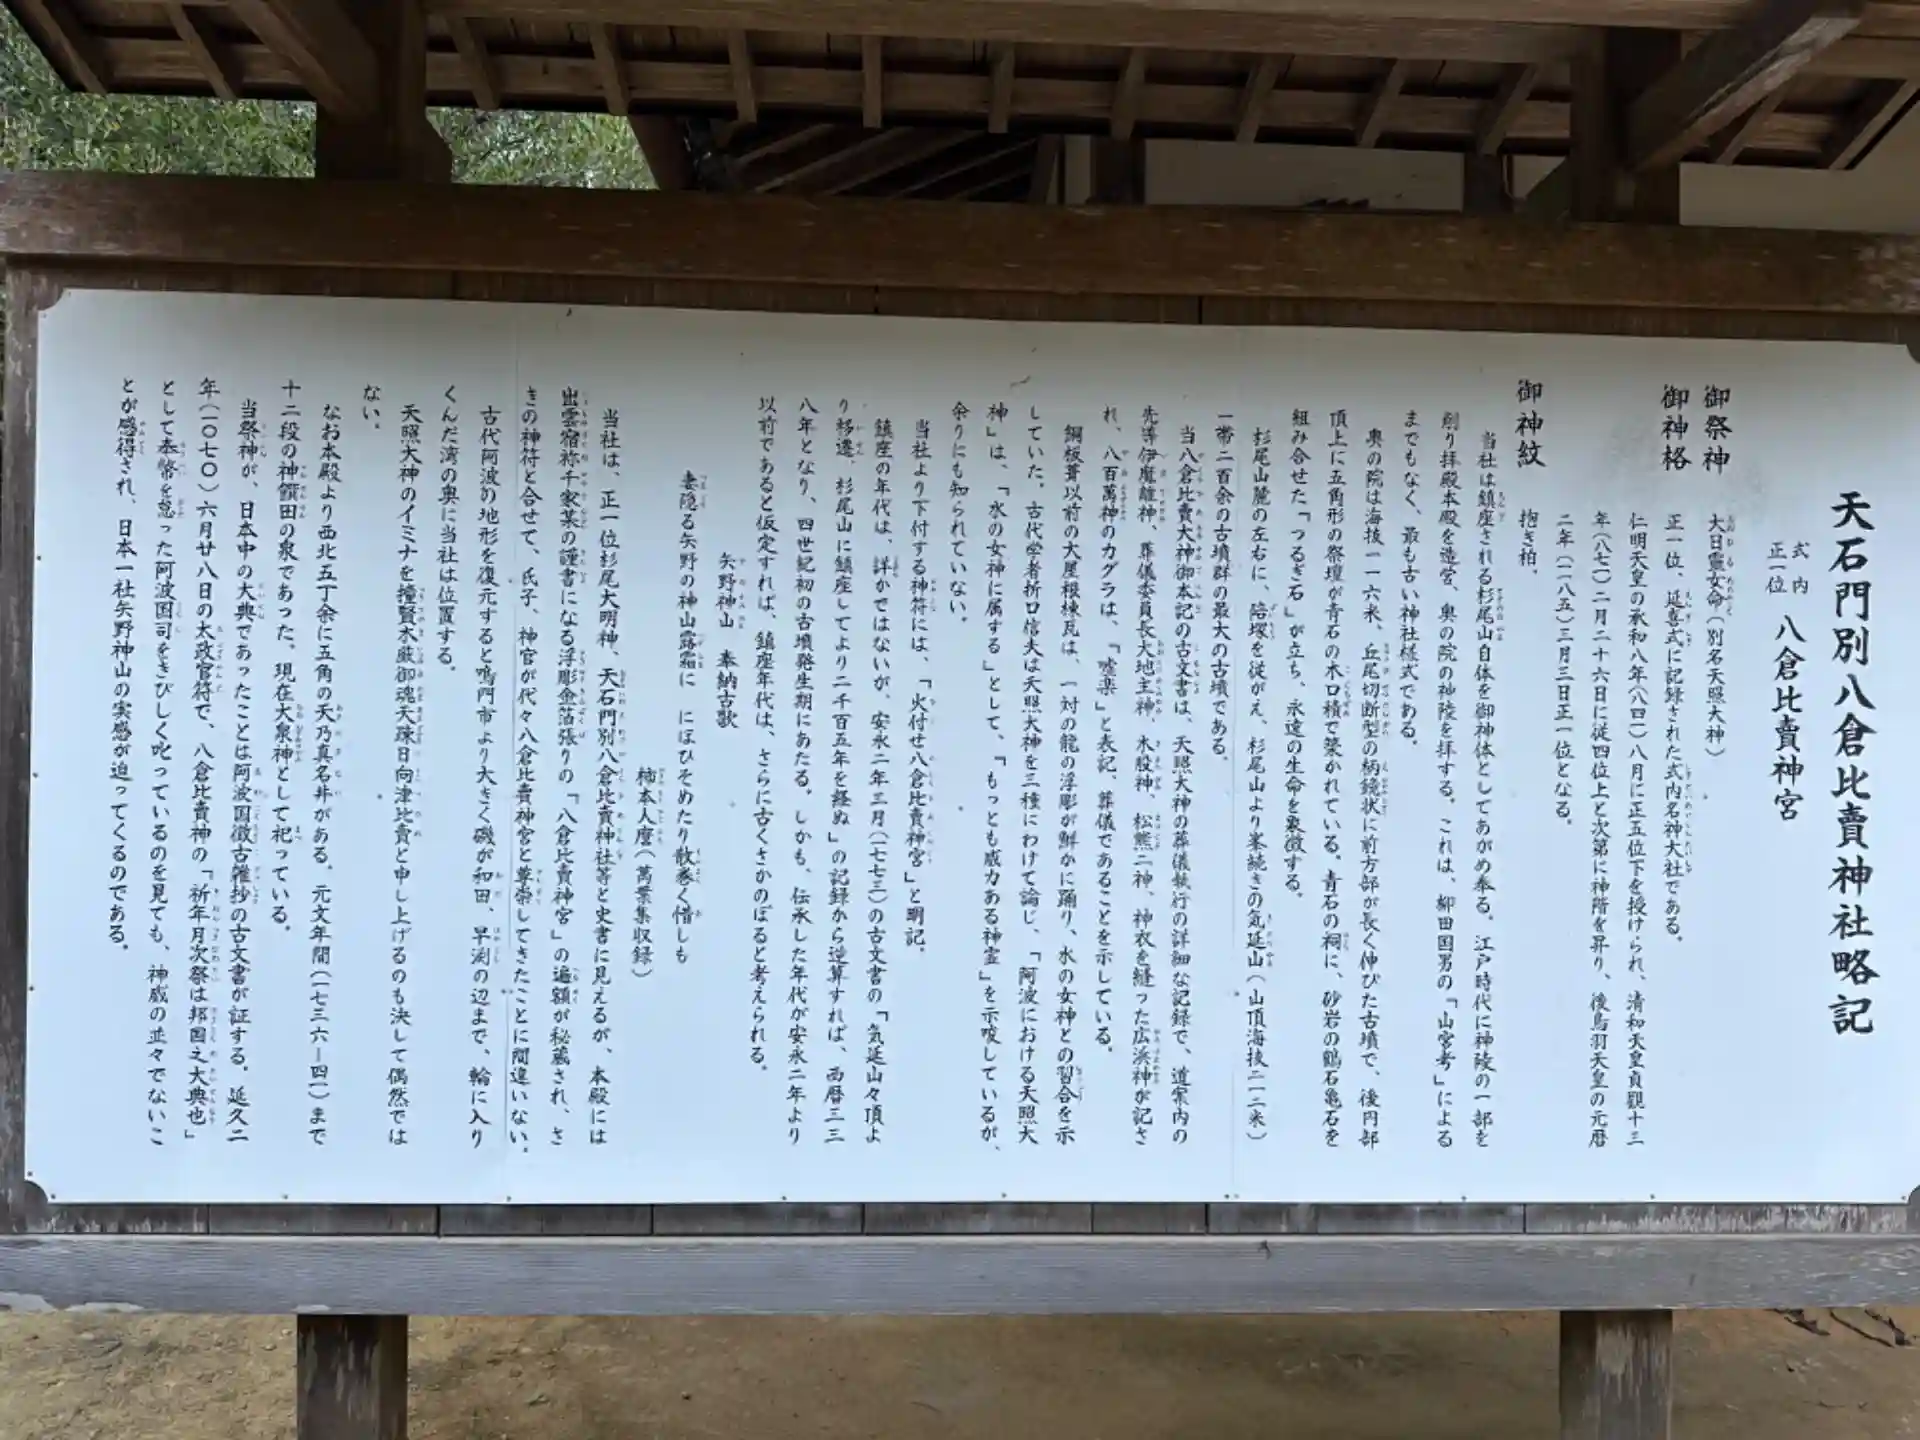 天石門別八倉比賣神社略記
式内
正一位
八倉比賣神宮
御祭神　大日孁女命（別名天照大神）
御神格　正一位、延喜式に記録された式内名神大社である。
仁明天皇の承和八年（八四一）八月に正五位下を授けられ、清和天皇貞觀十三
年（八七一）二月二十六日に従四位上と次第に神階を昇り、後鳥羽天皇の元暦
二年（一一八五）三月三日正一位となる。
御神紋　抱き柏。
当社は鎮座される杉尾山自体を御神体としてあがめ奉る。江戸時代に神陵の一部を
削り拝殿本殿を造営、奥の院の神陵を拝する。これは、柳田国男の「山宮考」による
までもなく、最も古い神社様式である。
奥の院は海抜一一六米、丘尾切断型の柄鏡状に前方部が長く伸びた古墳で、後円部
頂上に五角形の祭壇が青石の木口積で築かれている。青石の祠に、砂岩の鶴石亀石を
組み合せた「つるぎ石」が立ち、永遠の生命を象徴する。
杉尾山麓の左右に、陪塚を従がえ、杉尾山より峯続きの気延山（山頂海抜二一二米）
一帯二百余の古墳群の最大の古墳である。
当八倉比賣大神御本記の古文書は、天照大神の葬儀執行の詳細な記録で、道案内の
先導伊魔離神、葬儀委員長大地主神、木股神、松熊二神、神衣を縫った広浜神が記さ
れ、八百萬神のカグラは、「嘘楽」と表記、葬儀であることを示している。
銅板葺以前の大屋根棟瓦は、一対の龍の浮彫が鮮かに踊り、水の女神との習合を示
していた。古代学者折口信夫は天照大神を三種にわけて論じ、「阿波における天照大
神」は、「水の女神に属する」として、「もっとも威力ある神霊」を示唆しているが、
余りにも知られていない。
当社より下付する神符には、「火付せ八倉比賣神宮」と明記。
鎮座の年代は、詳かではないが、安永二年三月（一七七三）の古文書の「気延山々頂よ
り移遷、杉尾山に鎮座してより二千百五年を経ぬ」の記録から逆算すれば、西暦三三
八年となり、四世紀初の古墳発生期にあたる。しかも、伝承した年代が安永二年より
以前であると仮定すれば、鎮座年代は、さらに古くさかのぼると考えられる。
矢野神山　奉納古歌
妻隠る矢野の神山露霜に　にほひそめたり散巻く惜しも
柿本人麿（萬葉集収録）
当社は、正一位杉尾大明神、天石門別八倉比賣神社等と史書に見えるが、本殿には
出雲宿祢千家某の謹書になる浮彫金箔張りの「八倉比賣神宮」の遍額が秘蔵され、さ
きの神符と合せて、氏子、神官が代々八倉比賣神宮と尊崇してきたことに間違いない。
古代阿波の地形を復元すると鳴門市より大きく磯が和田、早渕の辺まで、輪に入り
くんだ湾の奥に当社は位置する。
天照大神のイミナを撞賢木厳御魂天疎日向津比賣と申し上げるのも決して偶然では
ない。
なお本殿より西北五丁余に五角の天乃真名井がある。元文年間（一七三六ー四一）まで
十二段の神饌田の泉であった。現在大泉神として祀っている。
当祭神が、日本中の大典であったことは阿波国徴古雑抄の古文書が証する。延久二
年（一〇七〇）六月廿八日の太政官符で、八倉比賣神の「祈年月次祭は邦国之大典也」
として奉幣を怠った阿波国司をきびしく叱っているのを見ても、神威の並々でないこ
とが感得され、日本一社矢野神山の実感が迫ってくるのである。